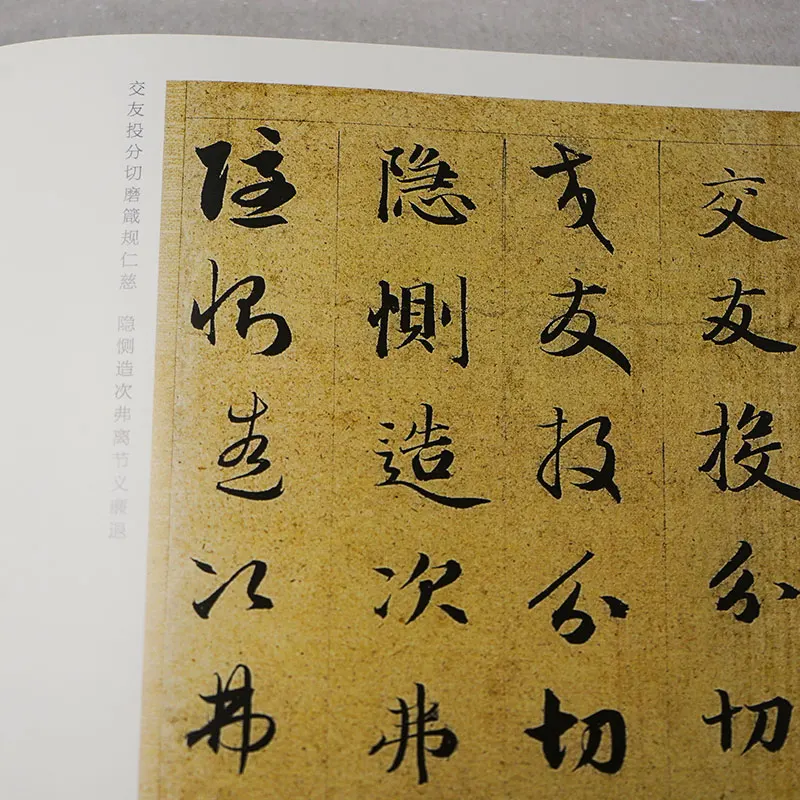 交友投分切
交友投分切
隐惻造次弗
隐惻造次弗
交友投分切磨箴规仁慈 隐恻造次弗离节义廉退